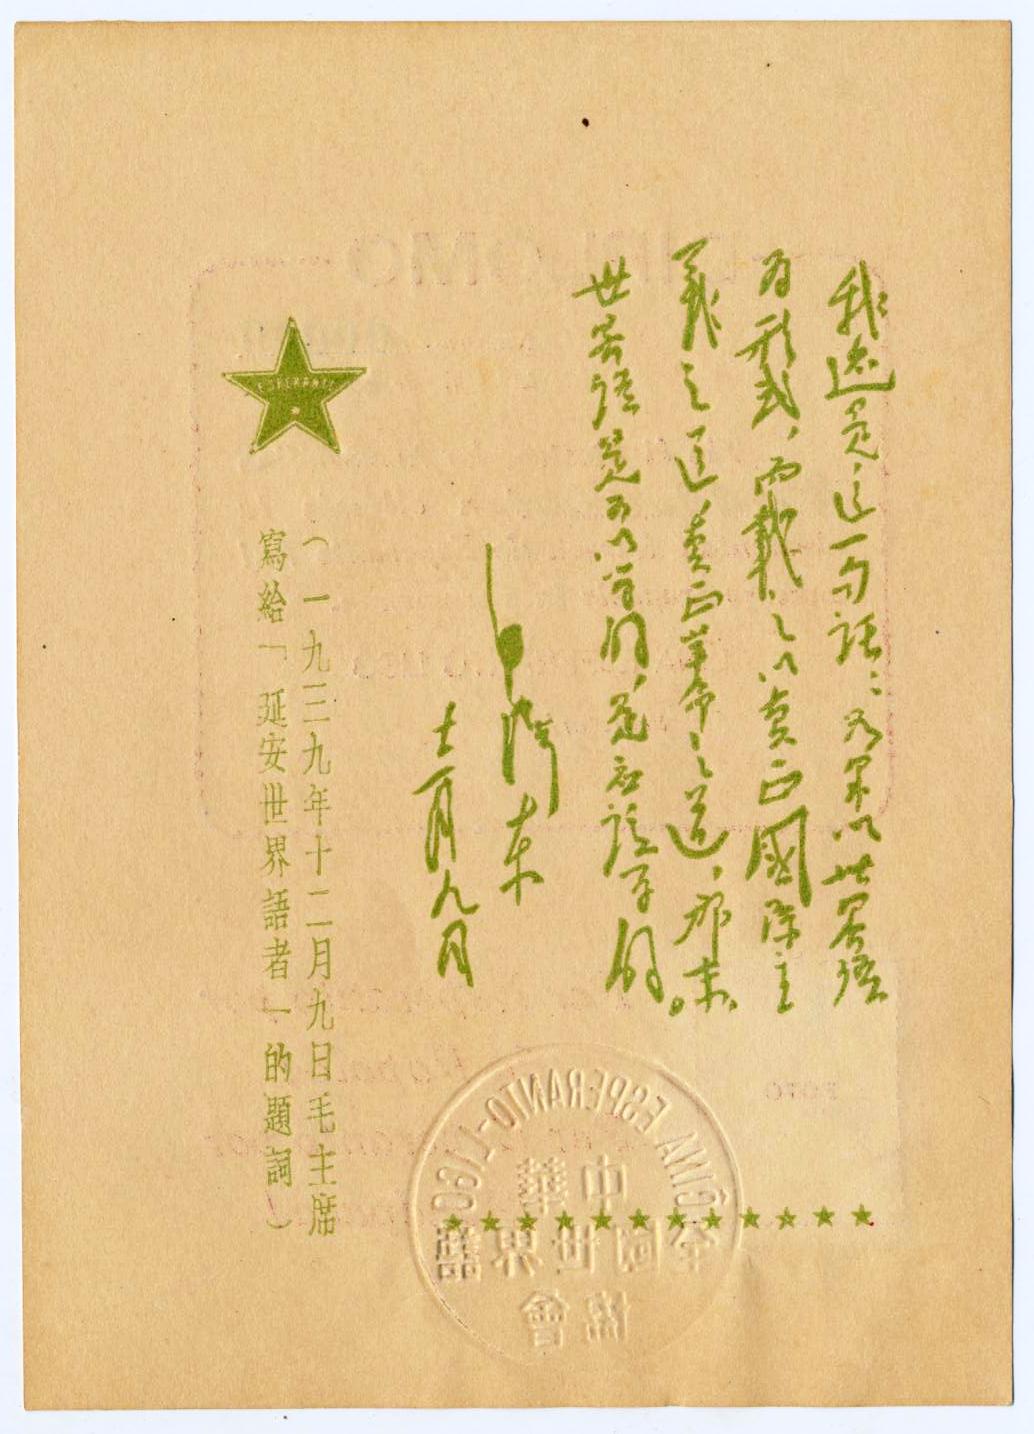 我還是這一句話：如果以世界語
為形式，而載之以真正國際主
義之道，真正革命之道，那末，
世界語是可以學的，是應該學的。
毛澤東
十二月九日
ESPERANTO
（一九三九年十二月九日毛主席
寫給「延安世界語者」的題詞）
ĈINA ESPERANTO-LIGO
中華
全國世界語
協會